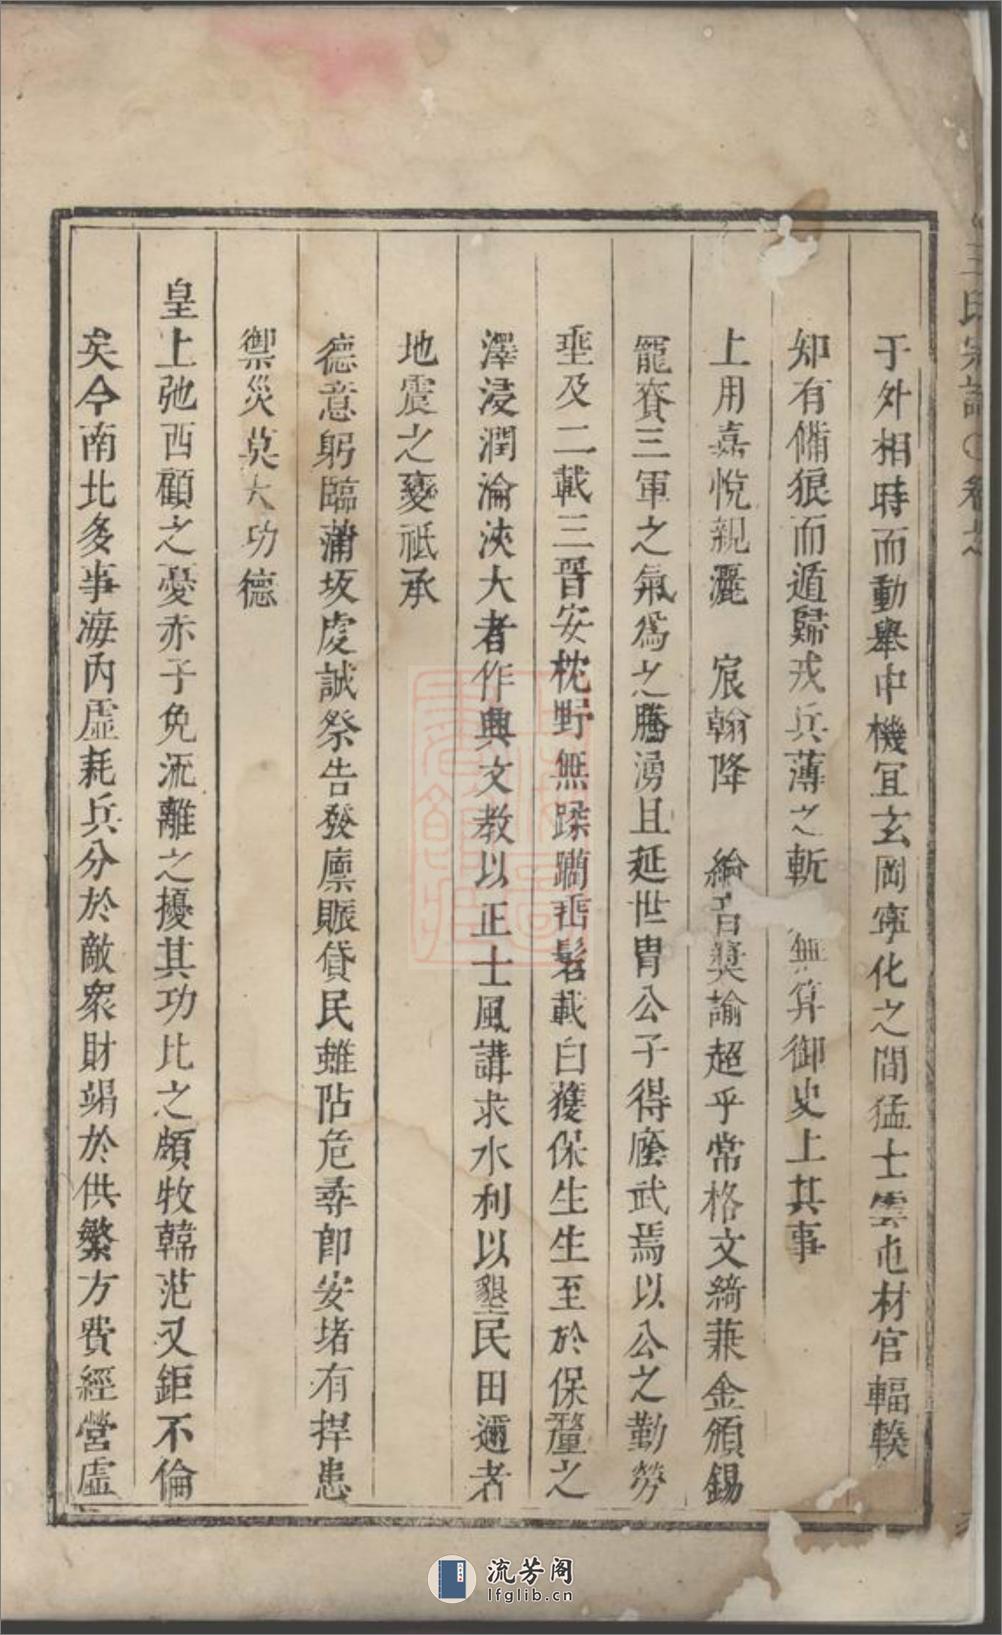 王氏宗譜 卷之
于外相時而動舉中機宜玄岡寧化之間猛士雲屯材官輻輳
知有備狼而遁歸戎兵薄之斬 無算御史上其事
上用嘉悅親灑 宸翰降 綸音奬諭超乎常格文綺兼金頒錫
寵賚三軍之氣爲之騰湧且延世胄公子得廕武焉以公之勤勞
垂及二載三晉安枕野無蹂躪垂髫載白獲保生生至於保釐之
澤浸潤淪浹大者作興文教以正士風講求水利以墾民田邇者
地震之變祇承
德意躬臨蒲坂虔誠祭告發廪賑貸民雖阽危尋卽安堵有捍患
禦災莫大功德
皇上弛西顧之憂赤子免流離之擾其功比之頗牧韓范又鉅不倫
矣今南北多事海內虛耗兵分於敵衆財竭於供繁方費經營虛
流芳阁
lfglib.cn